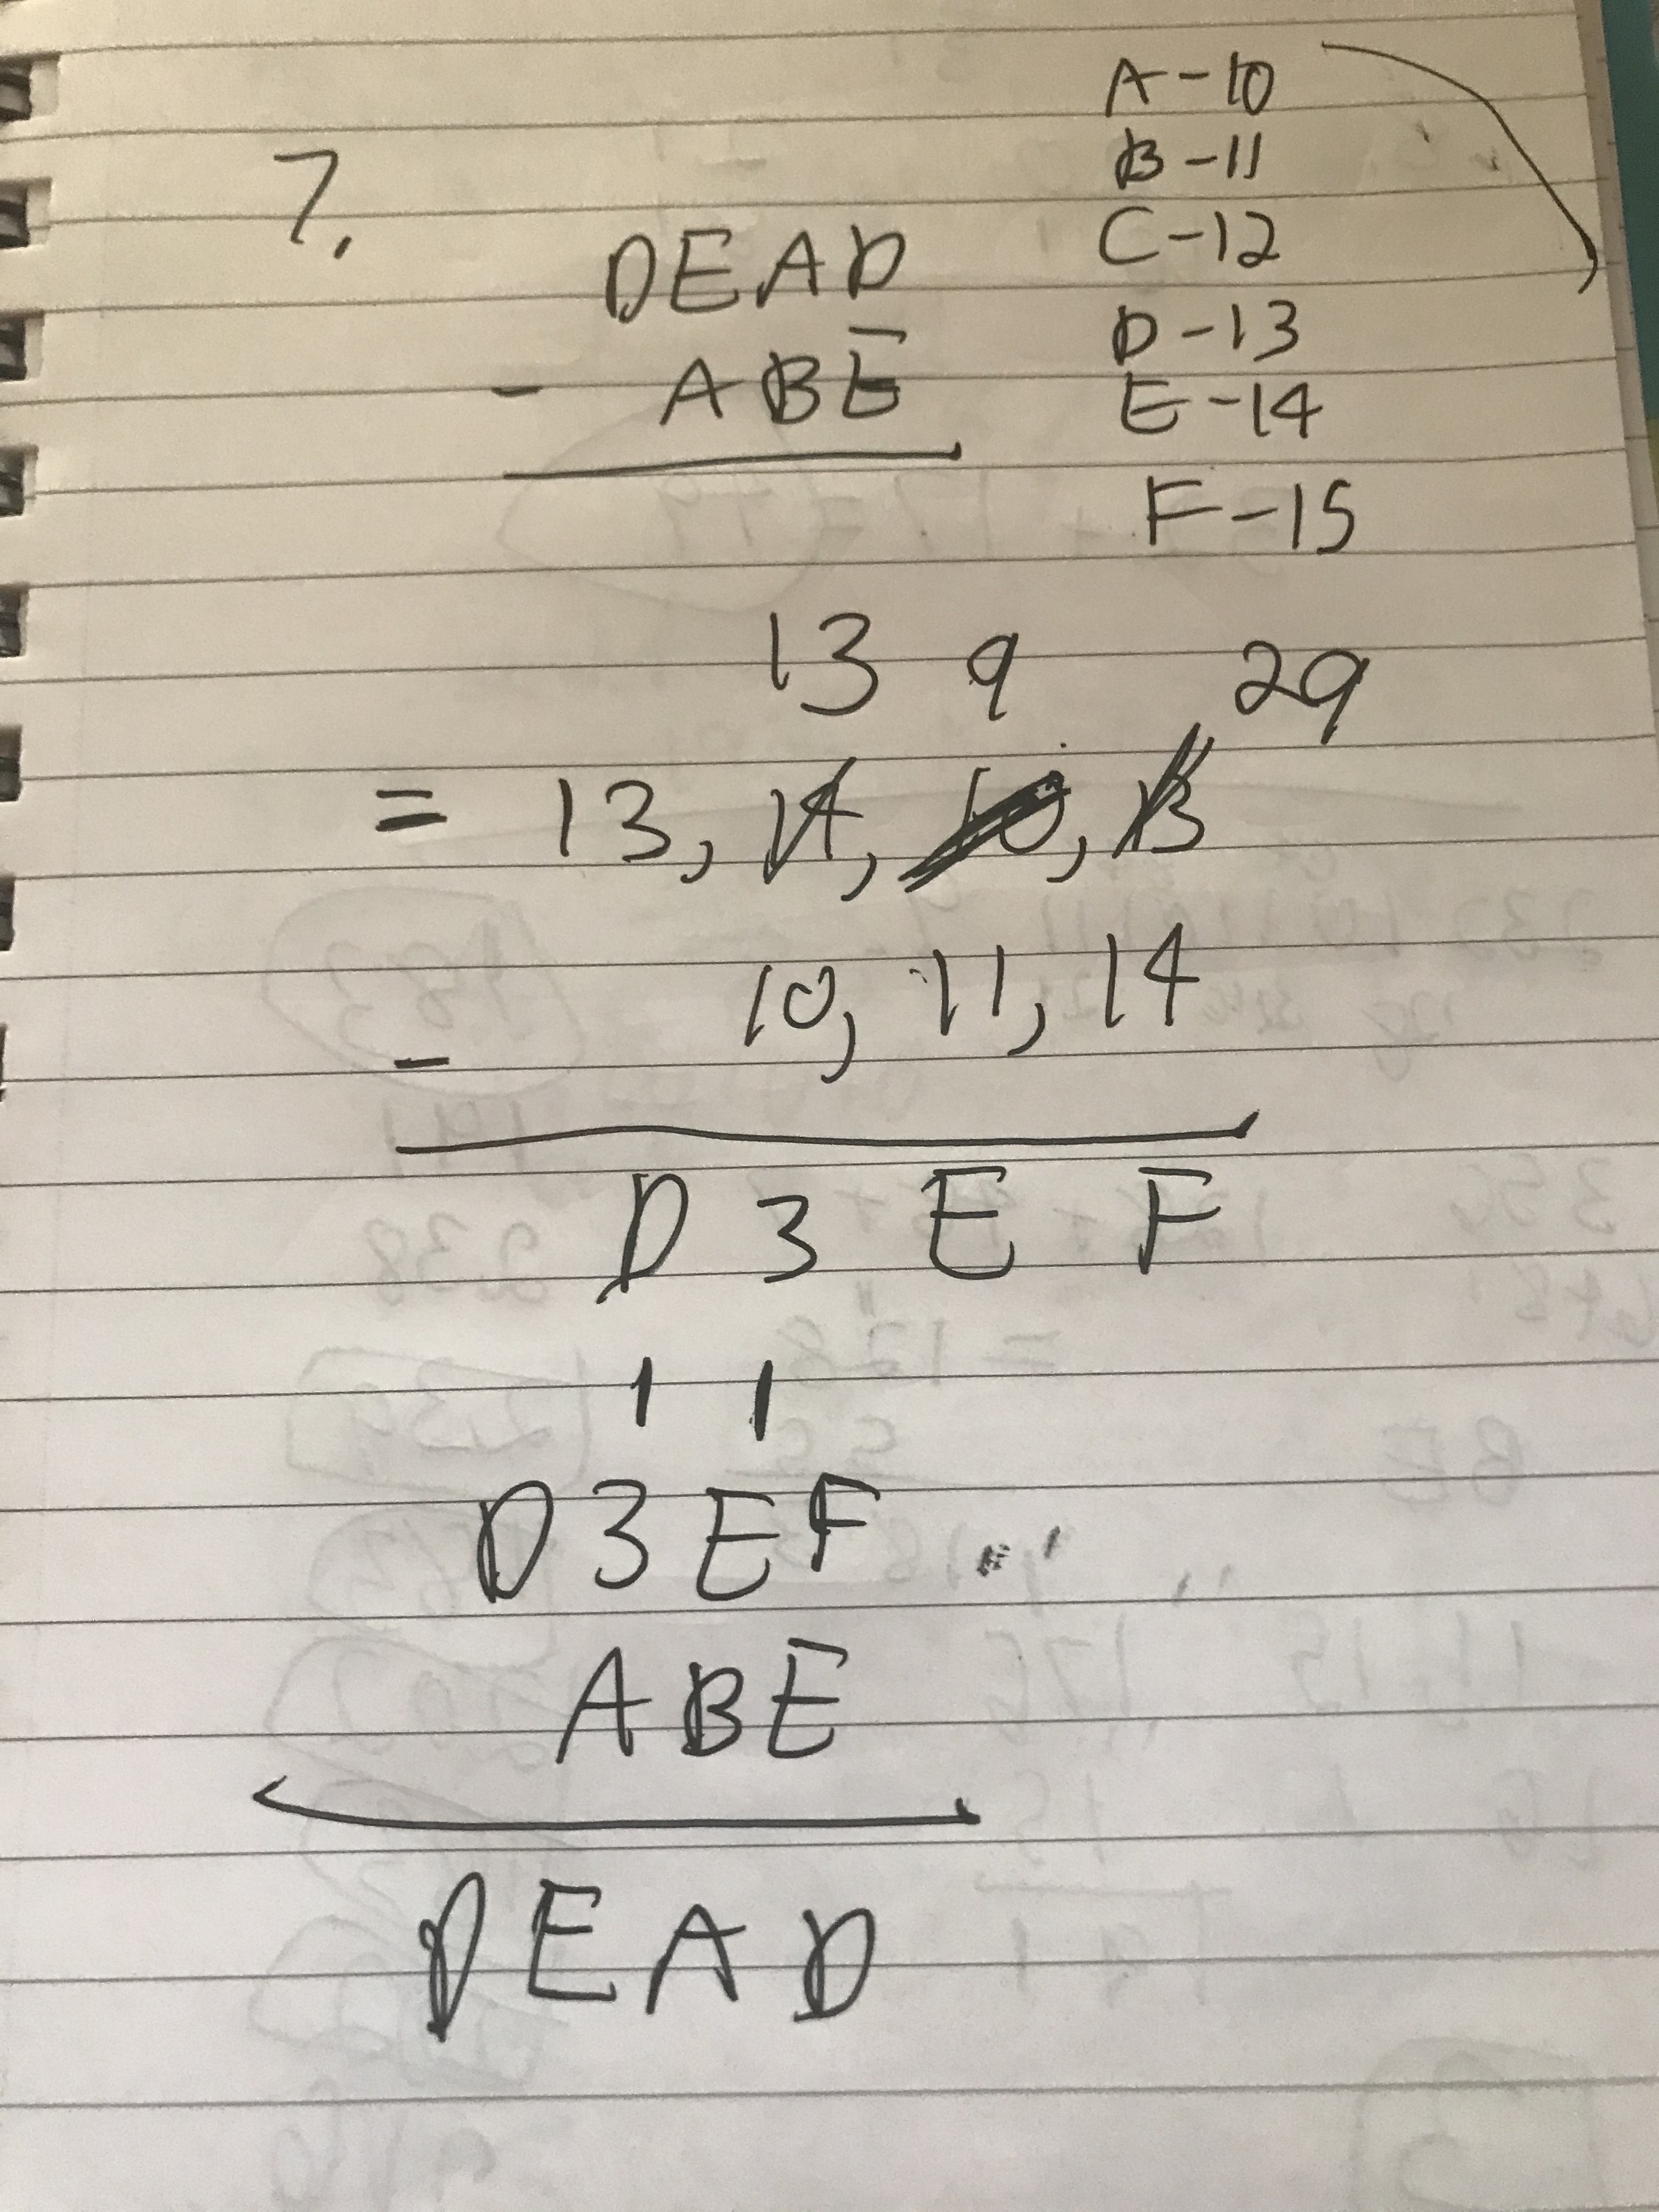 7.
DEAD
- ABE
A-10
B-11
C-12
D-13
E-14
F-15
13 9 29
= 13, 14, 10, 13
- 10, 11, 14
D 3 E F
1 1
D3EF
ABE
DEAD